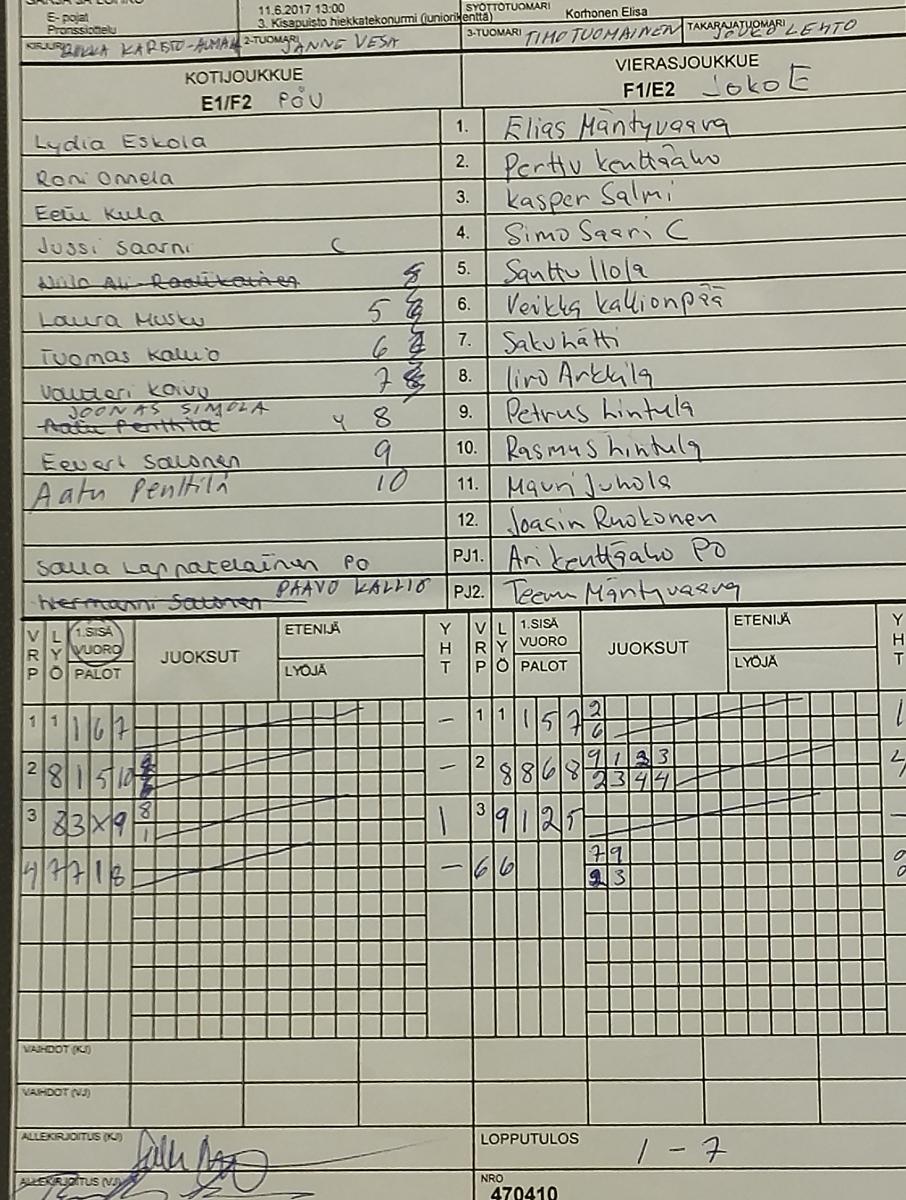 E- pojat
Pronssiottelu
11.6.2017 13:00
3. Kisapuisto hiekkatekonurmi (juniorikenttä)
SYÖTTÖTUOMARI Korhonen Elisa
KIRJURI
2-TUOMARI JANNE VESA
3-TUOMARI TIMO TUOMAINEN
TAKARAJATUOMARI LEHTO
KOTIJOUKKUE
E1/F2 PöU
VIERASJOUKKUE
F1/E2 JoKo E
Lydia Eskola 1. Elias Mäntyvaara
Roni Onnela 2. Perttu Kenttäaho
Eetu Kula 3. Kasper Salmi
Jussi Saarni C 4. Simo Saari C
5. Santtu Ilola
Laura Musku 5 6. Veikka Kallionpää
Tuomas Kallio 6 7. Saku hätti
7 8. Iiro Arkkila
JOONAS SIMOLA 8 9. Petrus hintula
Aatu Penttilä
Eevert Salonen 9 10. Rasmus hintula
Aatu Penttilä 10 11. Mauri Juhola
12. Joasin Ruokonen
PO PJ1. Ari Kenttäaho PO
Hermanni Salonen PAAVO KALLIO PJ2. Teemu Mäntyvaara
VRP LYÖ 1.SISÄ VUORO PALOT JUOKSUT ETENIJÄ LYÖJÄ YHT
VRP LYÖ 1.SISÄ VUORO PALOT JUOKSUT ETENIJÄ LYÖJÄ YHT
1 1 1 6 7 – 1 1 1 5 7 2 1
6
2 8 1 5 10 – 2 8 8 6 8 9 1 2 3 4
2 3 4 4
3 8 3 X 9 8 1 3 9 1 2 5 –
1
4 7 7 1 8 – 6 6 7 9
2 3
VAIHDOT (KJ)
VAIHDOT (VJ)
ALLEKIRJOITUS (KJ)
LOPPUTULOS 1 - 7
ALLEKIRJOITUS (VJ)
NRO
470410